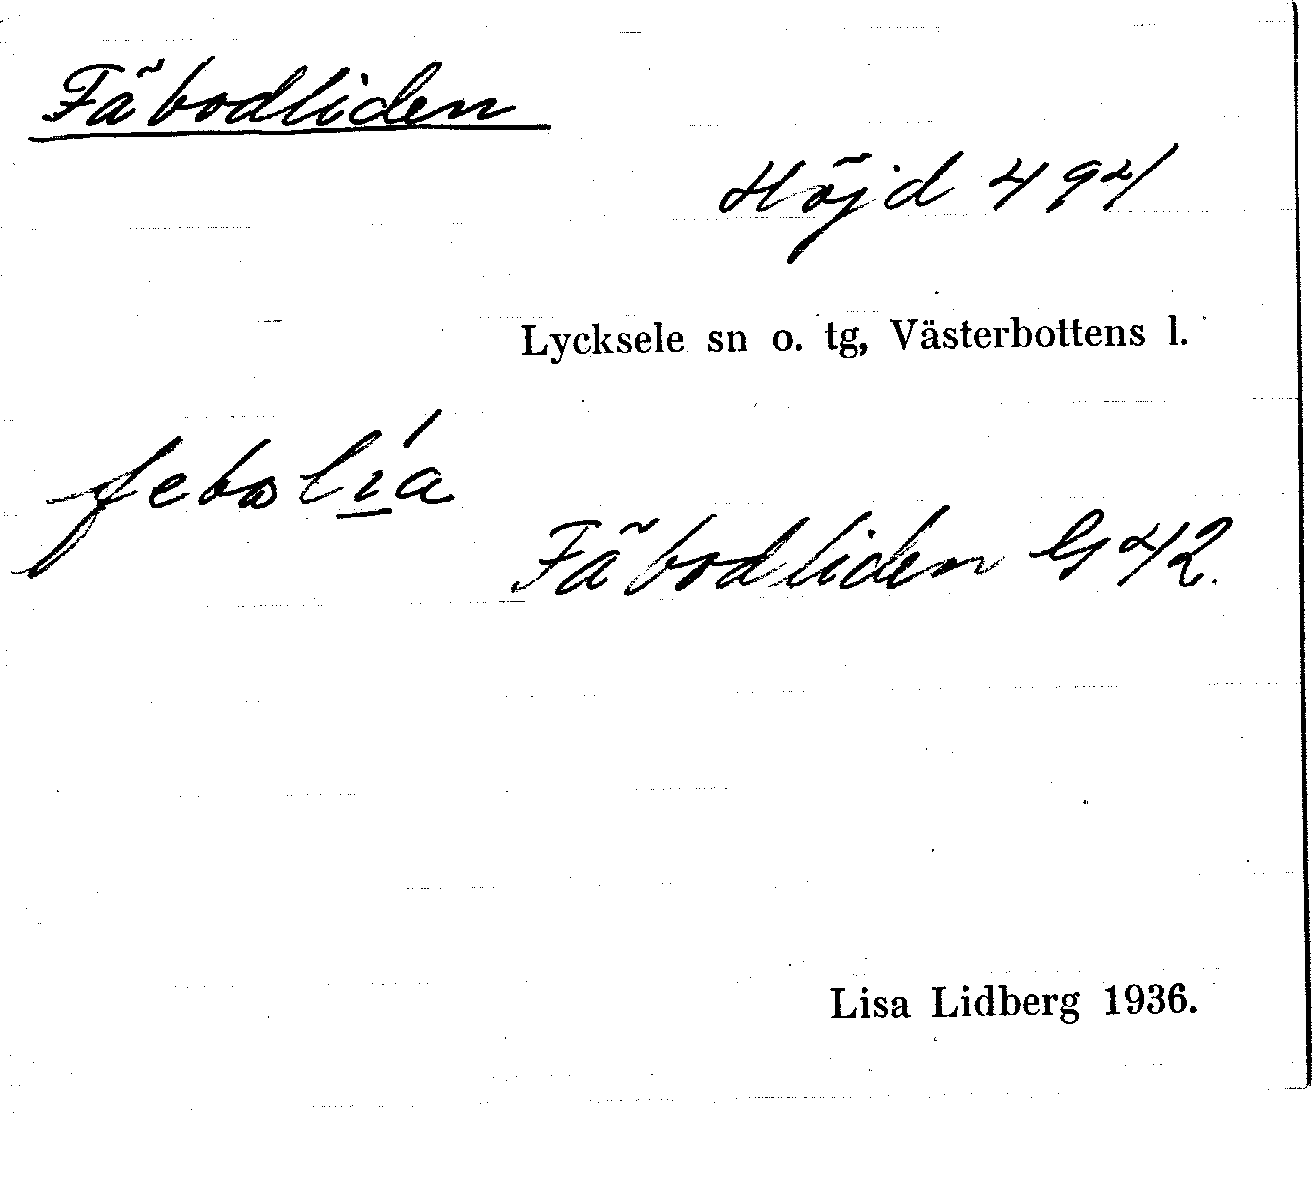 Fäbodliden
Höjd 494
Lycksele sn o. tg, Västerbottens l.
Fäbodliden G 42.
Lisa Lidberg 1936.